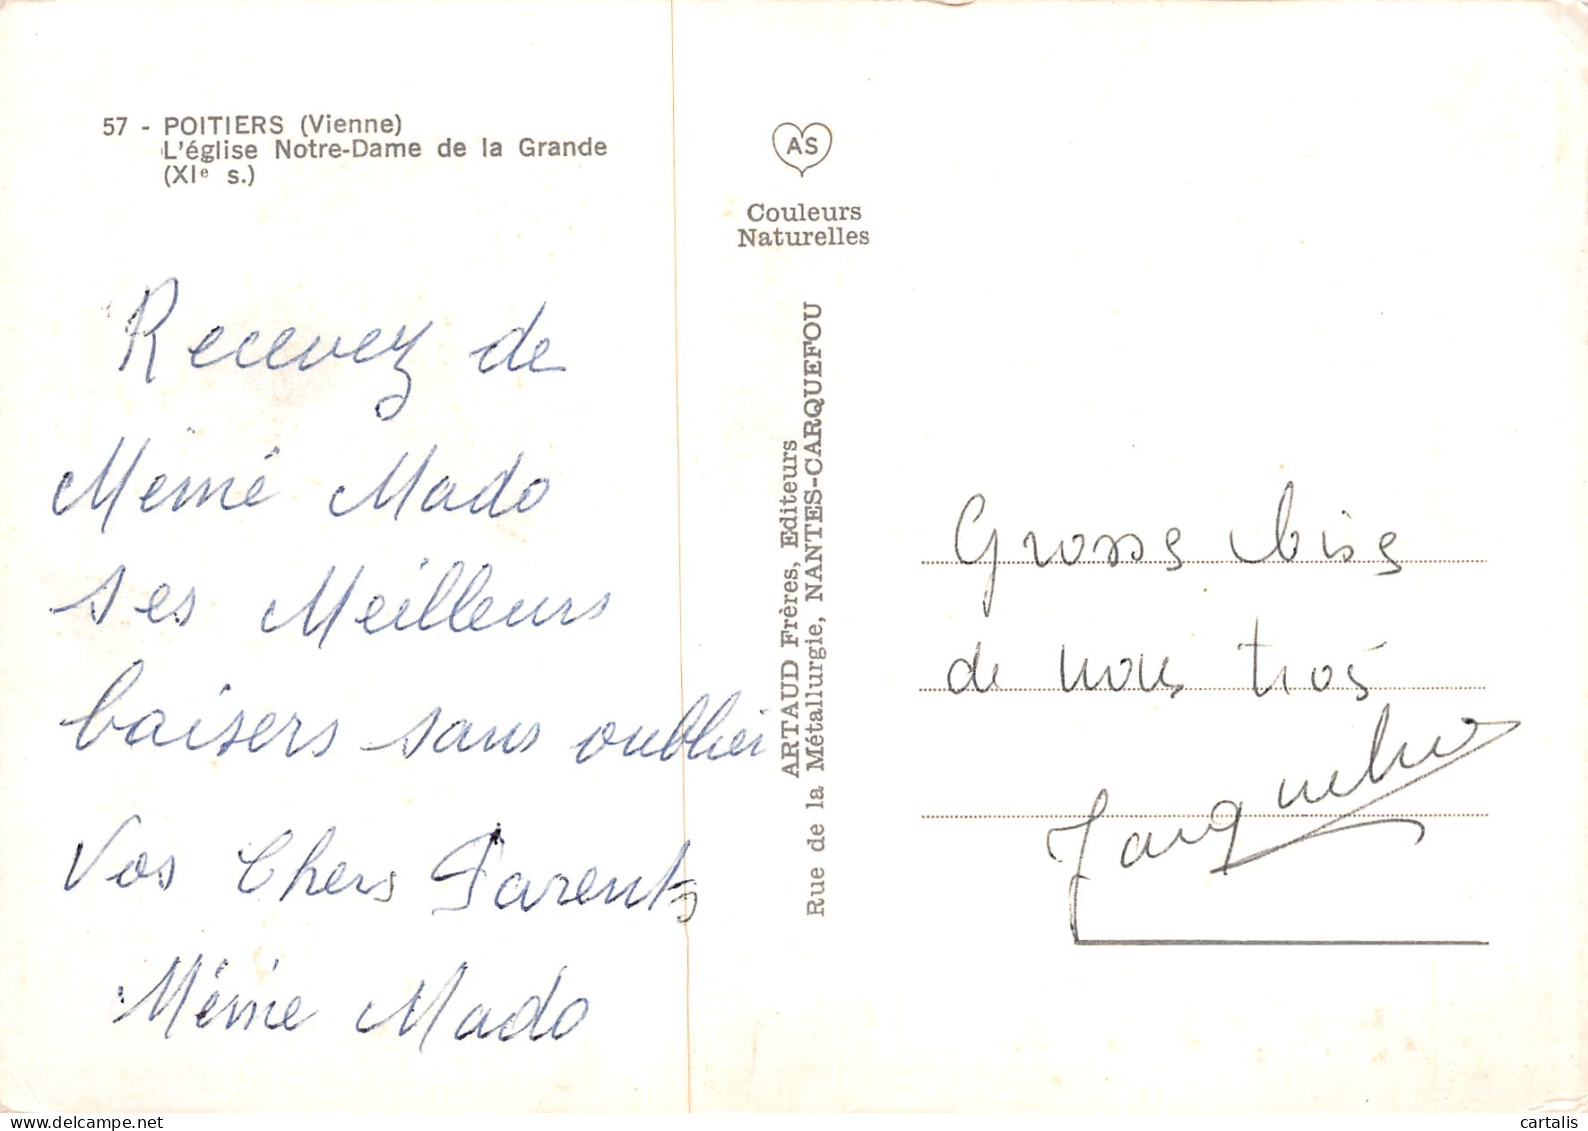 57 - POITIERS (Vienne)
L'église Notre-Dame de la Grande
(XIe s.)
Recevez de
Mémé Mado
ses Meilleurs
baisers sans oublier
Vos Chers Parents
Mémé Mado
AS
Couleurs
Naturelles
ARTAUD Frères, Editeurs
Rue de la Métallurgie, NANTES-CARQUEFOU
Grosse bise
de nous trois
cartalis